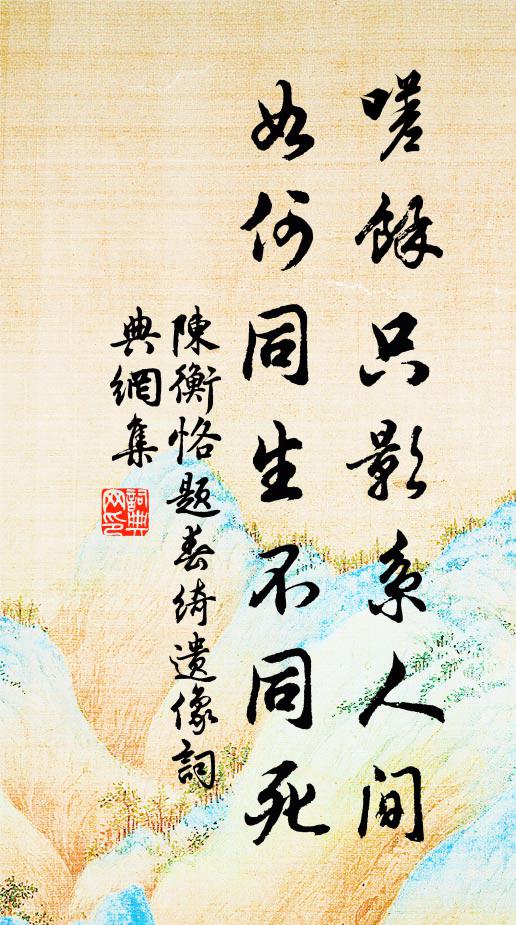 嗟餘只影系人间
如何同生不同死
陳衡恪题春绮遗像詞
典網集
詞典网印